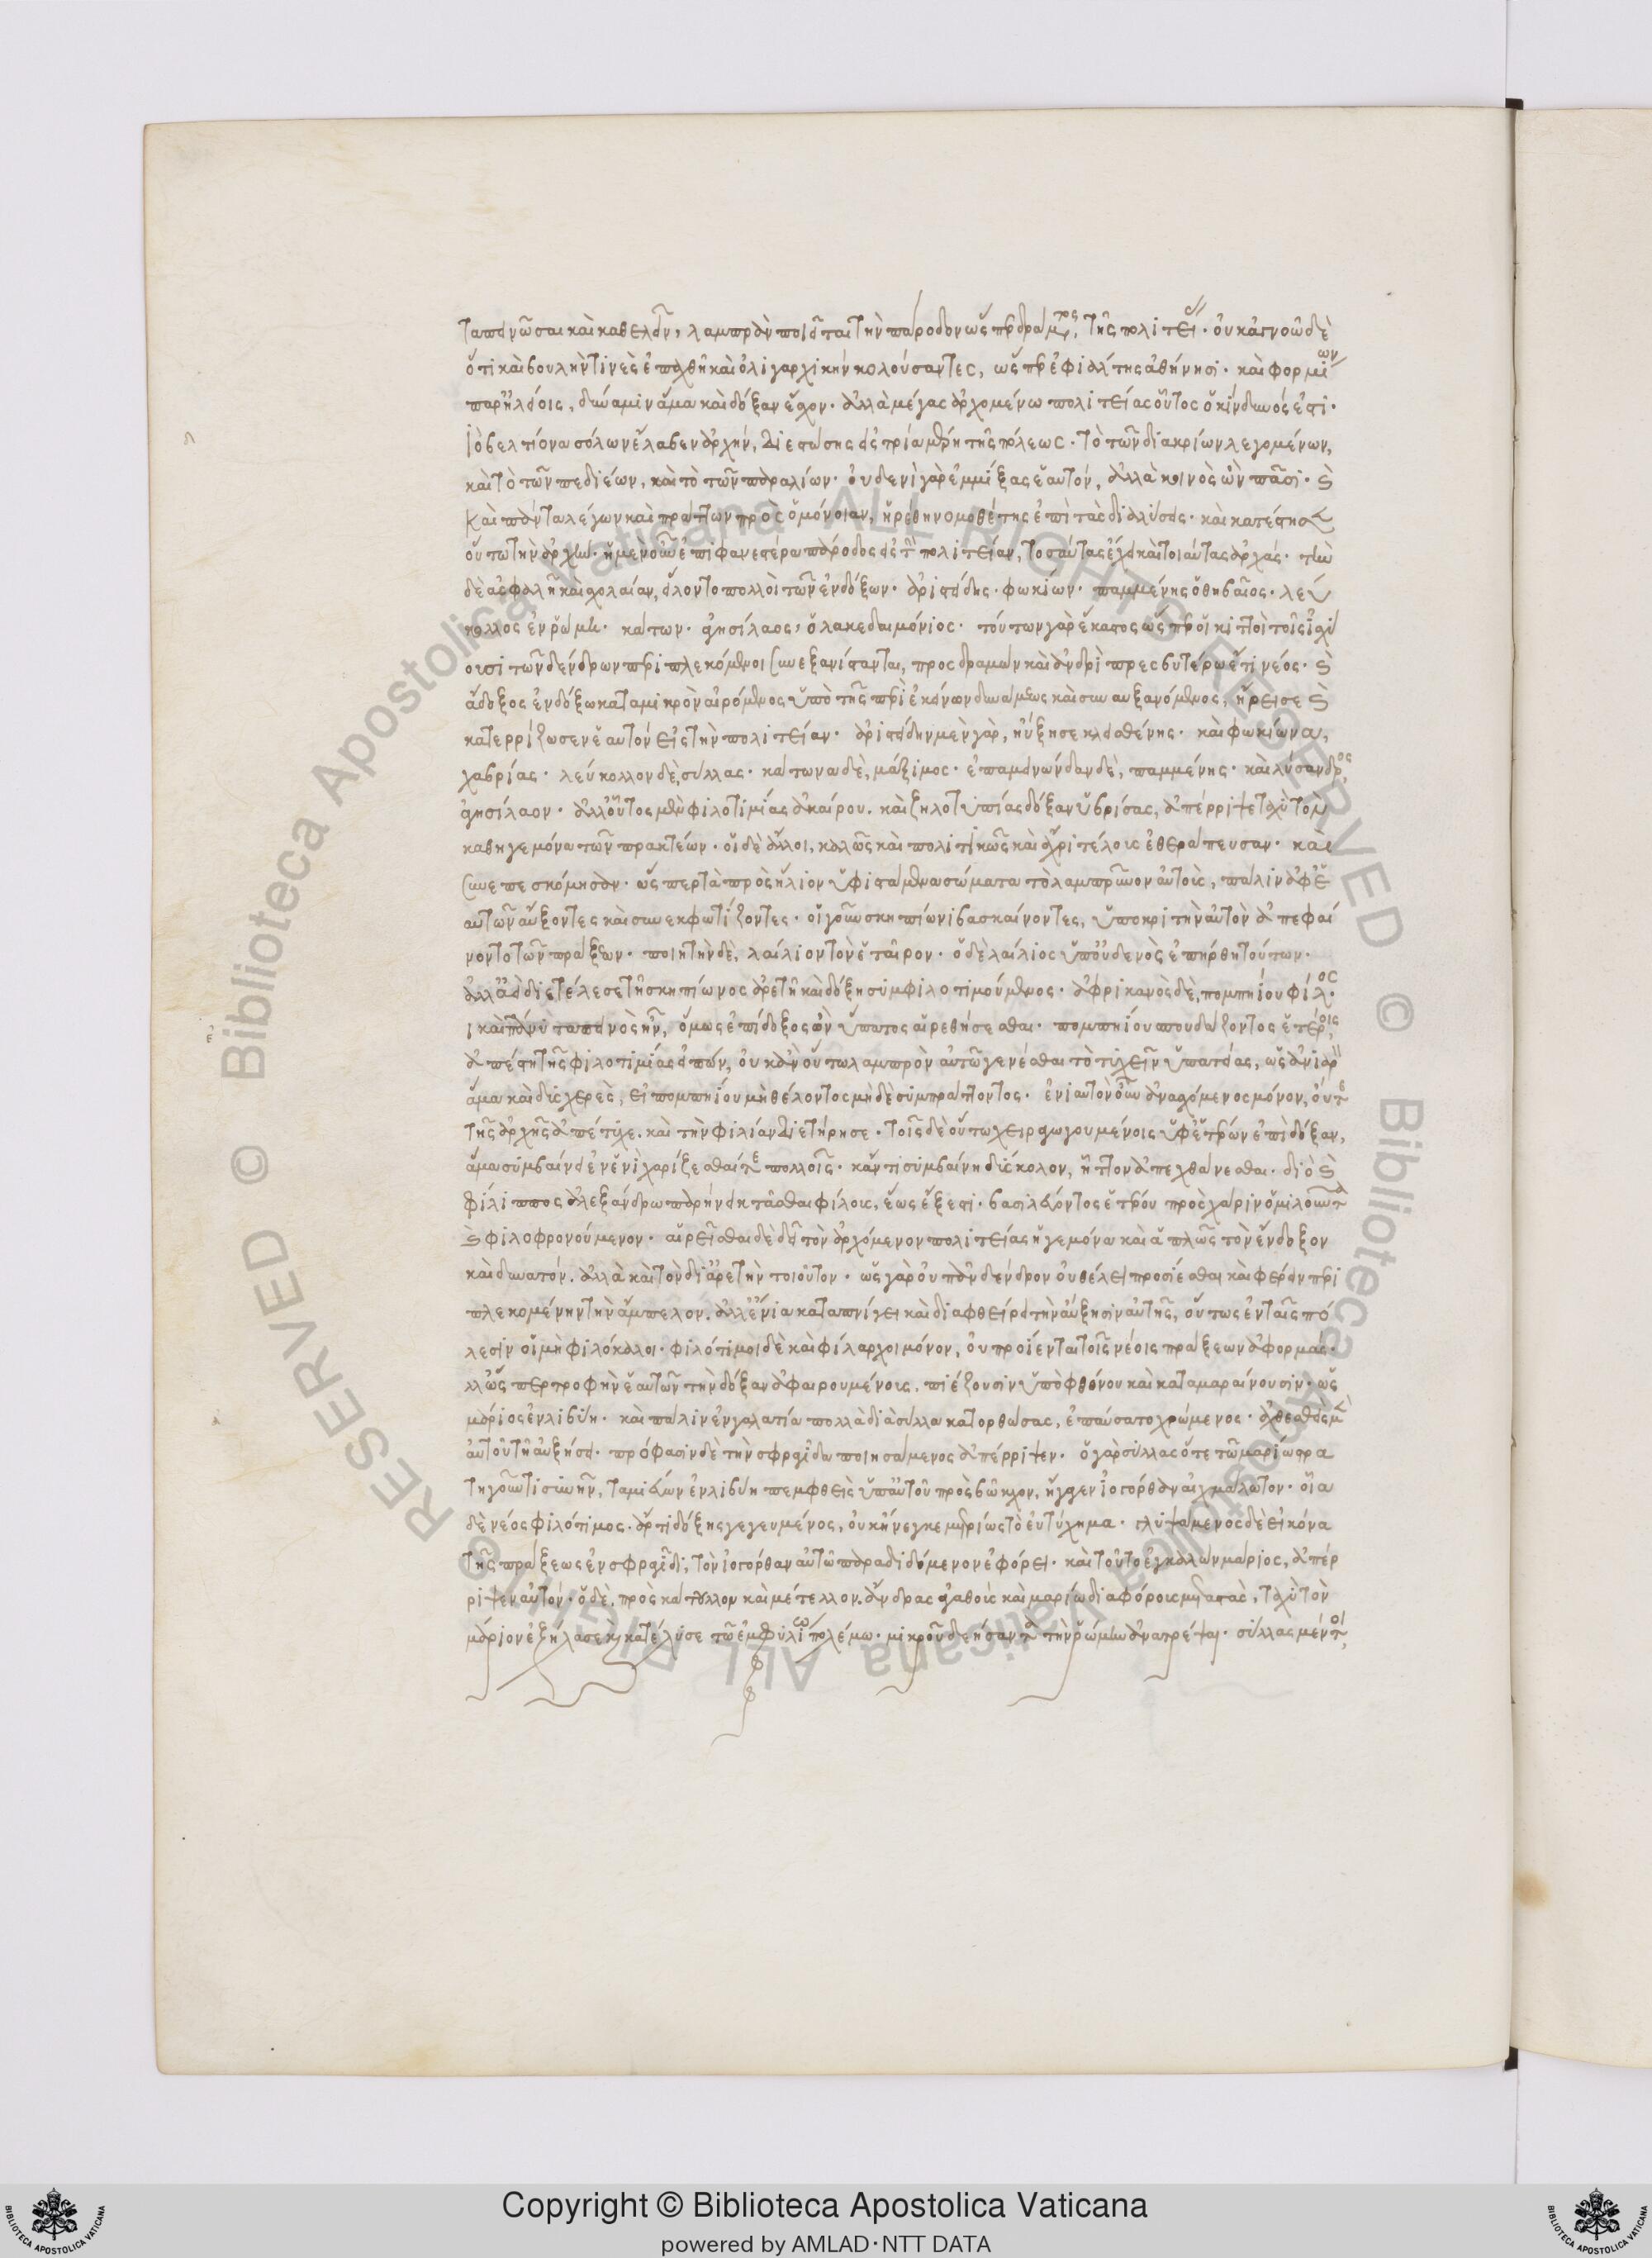 ταπεινῶσαι καὶ καθελεῖν, λαμπρὰν ποιεῖται τὴν πάροδον ὥσπερ δράματος, τῆς πολιτείας. οὐκ ἀγνοῶ δὲ
ὅτι καὶ βουλήν τινὲς ἐπαχθῆ καὶ ὀλιγαρχικὴν κολούσαντες, ὥσπερ ἐφιάλτης ἀθήνησι. καὶ φορμίων
παρ' ἠλείοις, δύναμιν ἅμα καὶ δόξαν ἔσχον. ἀλλὰ μέγας ἀρχομένω πολιτείας οὗτος ὁ κίνδυνός ἐστι.
Διὸ βελτίονα σόλων ἔλαβεν ἀρχήν, διεστώσης ἐς τρία μέρη τῆς πόλεως. τὸ τῶν διακρίων λεγομένων,
καὶ τὸ τῶν πεδιέων, καὶ τὸ τῶν παραλίων. οὐδενὶ γὰρ ἐμμίξας ἑαυτόν, ἀλλὰ κοινὸς ὢν πᾶσι. καὶ
καὶ πάντα λέγων καὶ πράττων πρὸς ὁμόνοιαν, ἡρέθη νομοθέτης ἐπὶ τὰς διαλύσεις. καὶ κατέστησεν
οὕτω τὴν ἀρχήν. ἡ μὲν οὖν ἐπιφανεστέρα πάροδος εἰς τὴν πολιτείαν, τοσαύτας ἔχει καὶ τοιαύτας ἀρχάς. τὴν
δὲ ἀσφαλῆ καὶ σχολαίαν, εἵλοντο πολλοὶ τῶν ἐνδόξων. ἀριστείδης. φωκίων. παμμένης ὁ θηβαῖος. λεύ
κολλος ἐν ῥώμη. κάτων. ἀγησίλαος, ὁ λακεδαιμόνιος. τούτων γὰρ ἕκαστος ὥσπερ οἱ κιττοὶ τοῖς ἰσχύ
ουσι τῶν δένδρων περιπλεκόμενοι συνεξανίστανται, προσδραμὼν καὶ ἀνδρὶ πρεσβυτέρω ἔτι νέος. καὶ
ἄδοξος ἐνδόξω κατὰ μικρὸν αἰρόμενος ὑπὸ τῆς περὶ ἐκεῖνον δυνάμεως καὶ συναυξανόμενος, ἤρεισε καὶ
κατερρίζωσεν ἑαυτὸν εἰς τὴν πολιτείαν. ἀριστείδην μὲν γὰρ, ηὔξησε κλεισθένης. καὶ φωκίωνα,
χαβρίας. λεύκολλον δὲ, σύλλας. κάτωνα δὲ, μάξιμος. ἐπαμεινώνδαν δὲ, παμμένης. καὶ λύσανδρος,
ἀγησίλαον. ἀλλ' οὗτος μὲν ὑπὸ φιλοτιμίας ἀκαίρου. καὶ ζηλοτυπίας δόξαν ὑβρίσας, ἀπέρριψε ταχὺ τὸν
καθηγεμόνα τῶν πρακτέων. οἱ δὲ ἄλλοι, καλῶς καὶ πολιτικῶς καὶ ἄχρι τέλους ἐθεράπευσαν. καὶ
συνεπεκόσμησαν. ὥσπερ τὰ πρὸς ἥλιον ὑφιστάμενα σώματα τὸ λαμπρῦνον αὐτοὺς, πάλιν ἀφ' ἑ
αυτῶν αὔξοντες καὶ συνεκφωτίζοντες. οἱ γοῦν σκηπίωνι βασκαίνοντες, ὑποκριτὴν αὐτὸν ἀπεφαί
νοντο τῶν πράξεων. ποιητὴν δὲ, λαίλιον τὸν ἑταῖρον. ὁ δὲ λαίλιος ὑπ' οὐδενὸς ἐπήρθη τούτων.
ἀλλ' ἀεὶ διετέλεσε τῆ σκηπίωνος ἀρετῆ καὶ δόξη συμφιλοτιμούμενος. ἀφρικανὸς δὲ, πομπηίου φίλος.
ει καὶ πάνυ ταπεινὸς ἦν, ὅμως ἐπίδοξος ὢν ὕπατος αἱρεθήσεσθαι. πομπηίου σπουδάζοντος ἑτέροις,
ἀπέστη τῆς φιλοτιμίας εἰπών, οὐκ ἂν οὕτω λαμπρὸν αὐτῶ γενέσθαι τὸ τυχεῖν ὑπατείας, ὡς ἀνιαρὸν
ἅμα καὶ δυσχερὲς, εἰ πομπηίου μὴ θέλοντος μηδὲ συμπράττοντος. ἐνιαυτὸν οὖν ἀνασχόμενος μόνον, οὔτε
τῆς ἀρχῆς ἀπέτυχε. καὶ τὴν φιλίαν διετήρησε. τοῖς δὲ οὕτω χειραγωγουμένοις ὑφ' ἑτέρων ἐπὶ δόξαν,
ἅμα συμβαίνει ἐν ἑνὶ χαρίζεσθαί τε πολλοῖς. κἄν τι συμβαίνη δύσκολον, ἧττον ἀπεχθάνεσθαι. διὸ καὶ
φίλιππος ἀλεξάνδρω παρήνει κτᾶσθαι φίλους, ἕως ἔξεστι. βασιλεύοντος ἑτέρου πρὸς χάριν ὁμιλοῦντα
καὶ φιλοφρονούμενον. αἱρεῖσθαι δὲ δεῖ τὸν ἀρχόμενον πολιτείας ἡγεμόνα καὶ ἁπλῶς τὸν ἔνδοξον
καὶ δυνατόν. ἀλλὰ καὶ τὸν δι' ἀρετὴν τοιοῦτον. ὡς γὰρ οὐ πᾶν δένδρον οὐ θέλει προσίεσθαι καὶ φέρειν περι
πλεκομένην τὴν ἄμπελον. ἀλλ' ἔνια καταπνίγει καὶ διαφθείρει τὴν αὔξησιν αὐτῆς, οὕτως ἐν ταῖς πό
λεσιν οἱ μὴ φιλόκαλοι. φιλότιμοι δὲ καὶ φίλαρχοι μόνον, οὐ προίενται τοῖς νέοις πράξεων ἀφορμάς.
ἀλλ' ὥσπερ τροφὴν ἑαυτῶν τὴν δόξαν ἀφαιρουμένους. πιέζουσιν ὑπὸ φθόνου καὶ καταμαραίνουσιν. ὡς
μάριος ἐν λιβύη. καὶ πάλιν ἐν γαλατία πολλὰ διὰ σύλλα κατορθώσας, ἐπαύσατο χρώμενος. ἀχθεσθεὶς μὲν
αὐτοῦ τῆ αὐξήσει. πρόφασιν δὲ τὴν σφραγῖδα ποιησάμενος ἀπέρριψεν. ὁ γὰρ σύλλας ὅτε τῶ μαρίω στρα
τηγοῦντι συνῆν, ταμιεύων ἐν λιβύη πεμφθεὶς ὑπ' αὐτοῦ πρὸς βῶκχον, ἤγαγεν ἰογόρθαν αἰχμάλωτον. οἷα
δὲ νέος φιλότιμος. ἄρτι δόξης γεγευμένος, οὐκ ἤνεγκε μετρίως τὸ εὐτύχημα. γλυψάμενος δὲ εἰκόνα
τῆς πράξεως ἐν σφραγῖδι, τὸν ἰογόρθαν αὐτῶ παραδιδόμενον ἐφόρει. καὶ τοῦτο ἐγκαλῶν μάριος, ἀπέρ
ριψεν αὐτόν. ὁ δὲ, πρὸς κάτουλλον καὶ μέτελλον. ἄνδρας ἀγαθοὺς καὶ μαρίω διαφόρους μεταστὰς, ταχὺ τὸν
μάριον ἐξήλασε καὶ κατέλυσε τῶ ἐμφυλίω πολέμω. μικροῦ δεήσαντα τὴν ῥώμην ἀνατρέψαι. σύλλας μέντοι,